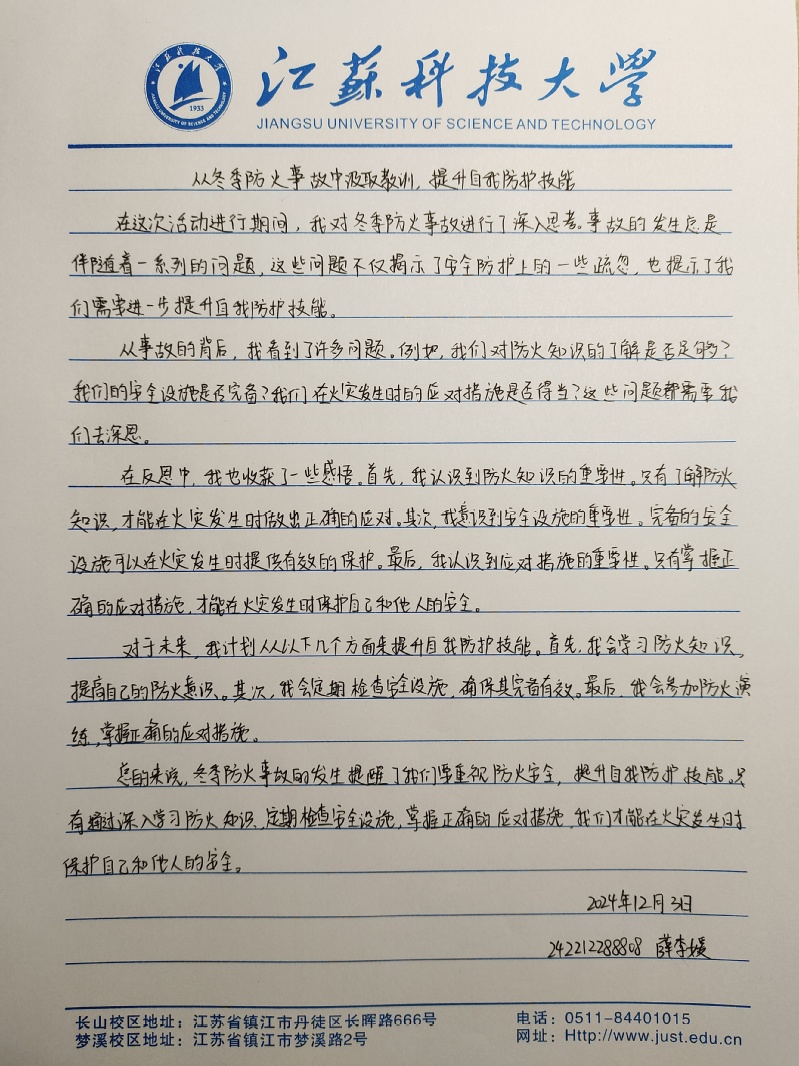 江苏科技大学
JIANGSU UNIVERSITY OF SCIENCE AND TECHNOLOGY
1933
从冬季防火事故中汲取教训,提升自我防护技能
在这次活动进行期间,我对冬季防火事故进行了深入思考。事故的发生总是
伴随着一系列的问题,这些问题不仅揭示了安全防护上的一些疏忽,也提示了我
们需要进一步提升自我防护技能。
从事故的背后,我看到了许多问题。例如,我们对防火知识的了解是否足够?
我们的安全设施是否完备?我们在火灾发生时的应对措施是否得当?这些问题都需要我
们去深思。
在反思中,我也收获了一些感悟。首先,我认识到防火知识的重要性。只有了解防火
知识,才能在火灾发生时做出正确的应对。其次,我意识到安全设施的重要性。完备的安全
设施可以在火灾发生时提供有效的保护。最后,我认识到应对措施的重要性。只有掌握正
确的应对措施,才能在火灾发生时保护自己和他人的安全。
对于未来,我计划从以下几个方面来提升自我防护技能。首先,我会学习防火知识,
提高自己的防火意识。其次,我会定期检查安全设施,确保其完备有效。最后,我会参加防火演
练,掌握正确的应对措施。
总的来说,冬季防火事故的发生提醒了我们要重视防火安全,提升自我防护技能。只
有通过深入学习防火知识、定期检查安全设施,掌握正确的应对措施,我们才能在火灾发生时
保护自己和他人的安全。
2024年12月3日
242212288808 薛李媛
长山校区地址:江苏省镇江市丹徒区长晖路666号
电话:0511-84401015
梦溪校区地址:江苏省镇江市梦溪路2号
网址:Http://www.just.edu.cn